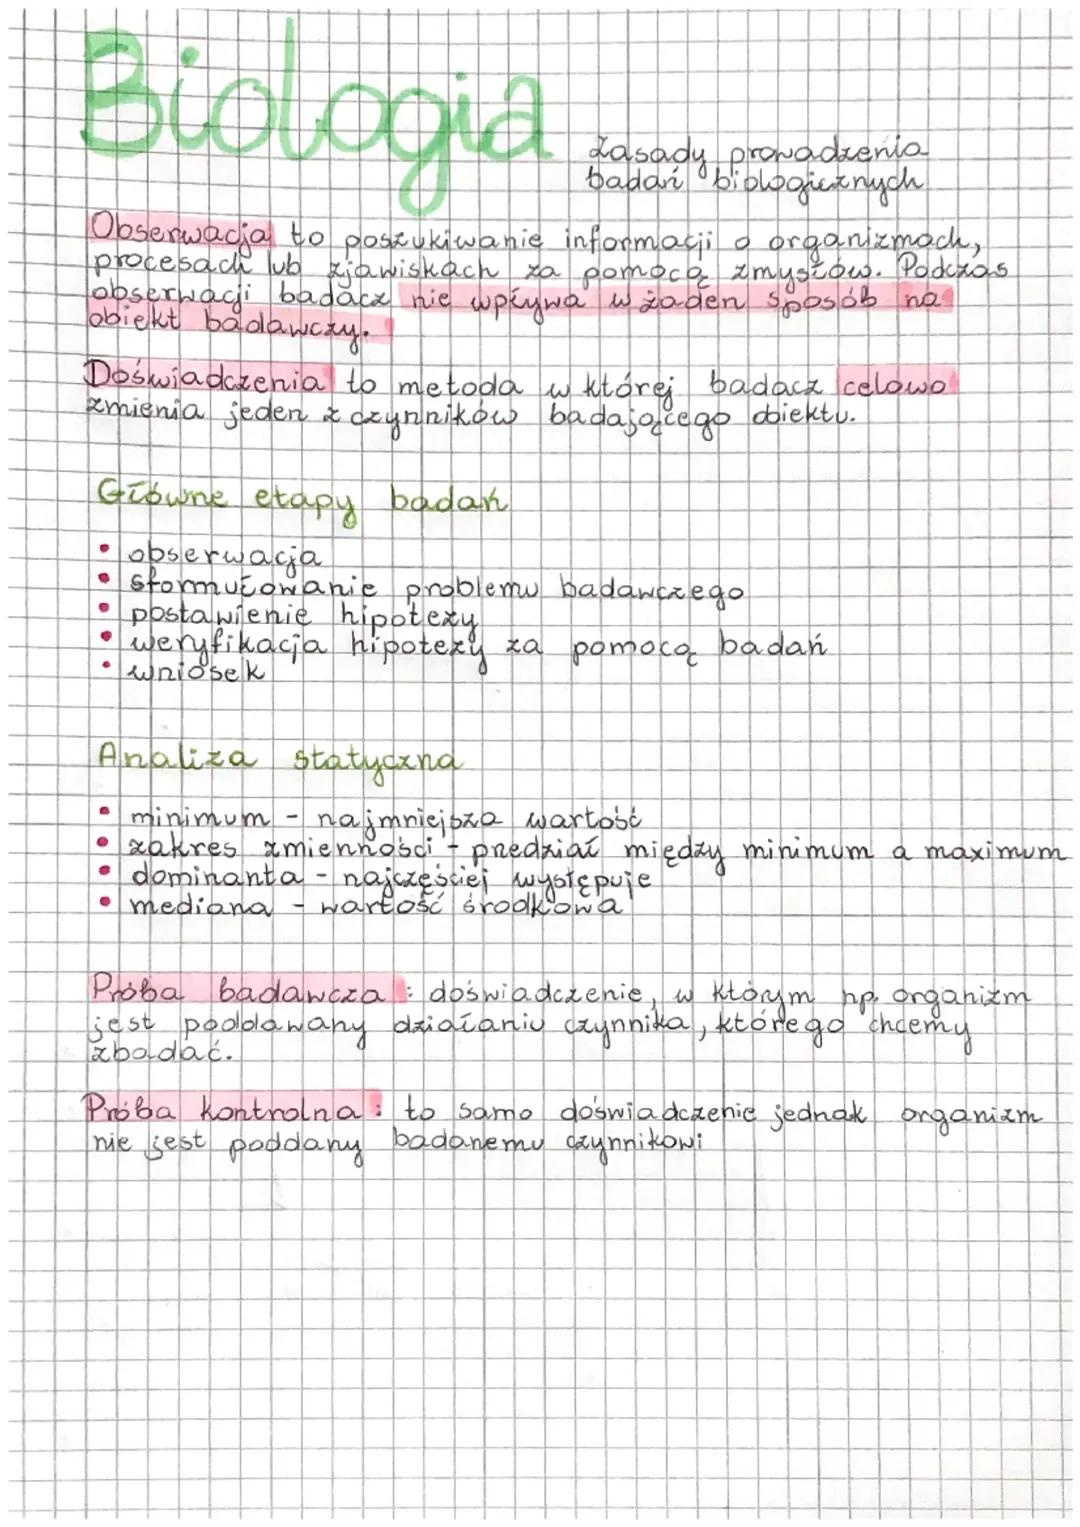 Biologia
Zasady prowadzenia
badań biologicznych
Obserwacja to poszukiwanie informacji o organizmach,
procesach lub zjawiskach za pomocą zmysłów. Podczas
obserwacji badacz nie wpływa w żaden sposób na
obiekt badawczy.
Doświadczenia to metoda w której badacz celowo
zmienia jeden z czynników badającego obiektu.
Główne etapy badań
• obserwacja
• sformułowanie problemu badawczego
• postawienie hipotezy
• weryfikacja hipotezy za pomocą badań
• wniosek
Analiza statyczna
• minimum - najmniejsza wartość
• zakres zmienności - przedział między minimum a maximum
• dominanta - najczęściej występuje
• mediana - wartość środkowa
Próba badawcza : doświadczenie, w którym np. organizm
jest poddawany działaniu czynnika, którego chcemy
zbadać.
Próba kontrolna : to samo doświadczenie jednak organizm
nie jest poddany badanemu czynnikowi